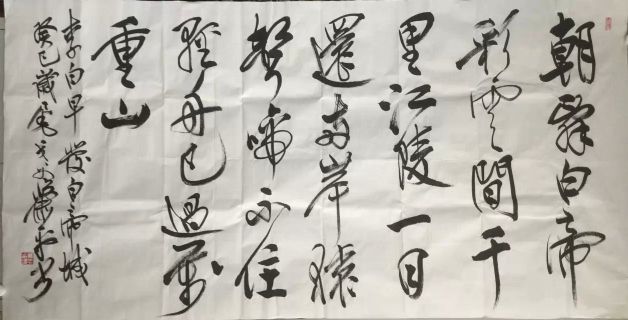 朝辞白帝
彩雲間千
里江陵一日
還兩岸猿
聲啼不住
輕舟已過萬
重山
李白早發白帝城
癸巳歲尾